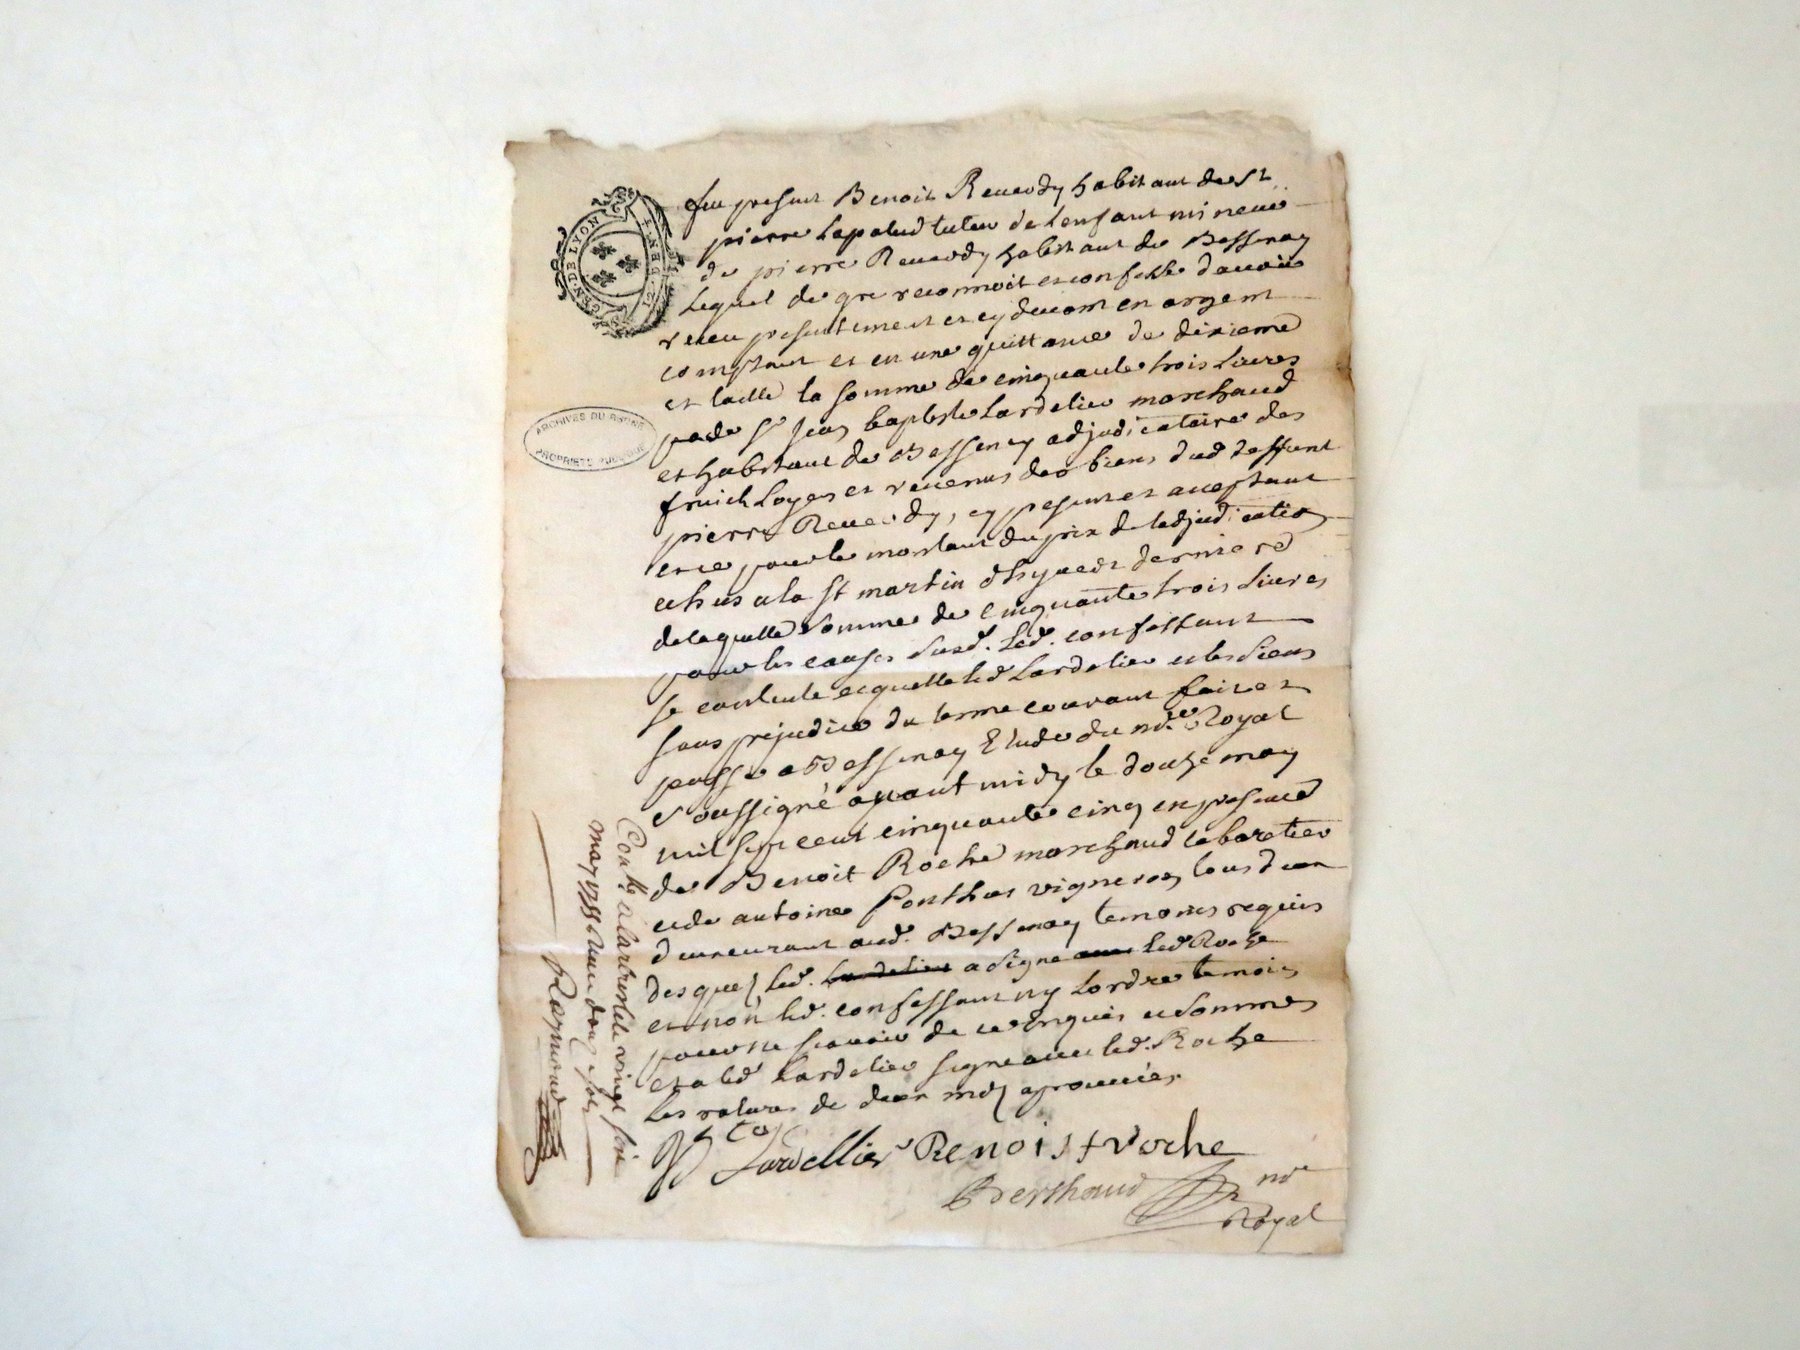 GEN. DE LYON
ARCHIVES DU RHONE
PROPRIETE PUBLIQUE
fut present Benoit Reverdy habitant de St
pierre Lapalud tuteur de Lenfant mineur
de pierre Reverdy habitant de Bessenay
Lequel de gre reconnoit et confesse davoir
receu presentement et cy devant en argent
comptant et en une quittance de dixieme
et taille la somme de cinquante trois Livres
de sr Jean baptiste Lardelier marchand
et habitant de Bessenay adjudicataire des
fruicts Loyers et revenus des biens dud deffunt
pierre Reverdy, cy present et aceptant
et ce pour le montant du prix de ladjudication
echus a la St martin dhyver derniere
de laquelle somme de cinquante trois Livres
pour les causes susd. Led. confessant
se contente et quitte led Lardelier et les siens
sans prejudice du terme courant fait et
passé a Bessenay Etude du nore Royal
soussigné avant midy le douze may
mil sept cent cinquante cinq en presence
de Benoit Roche marchand cabaretier
et de antoine Ponthus vigneron tous deux
demeurant aud. Bessenay temoins requis
desquels led. Lardelier a signé avec led Roche
et non led. confessant ny Lordre temoin
pour ne scavoir de ce enquis et sommes
et a led Lardelier signe avec led. Roche
Les ratures de deux mots aprouvées
Lardellier Benoist roche
Berthaud nore
Royal
Conlle a larbresle le vingt six
may 1755 Receu douze sols
Raymond